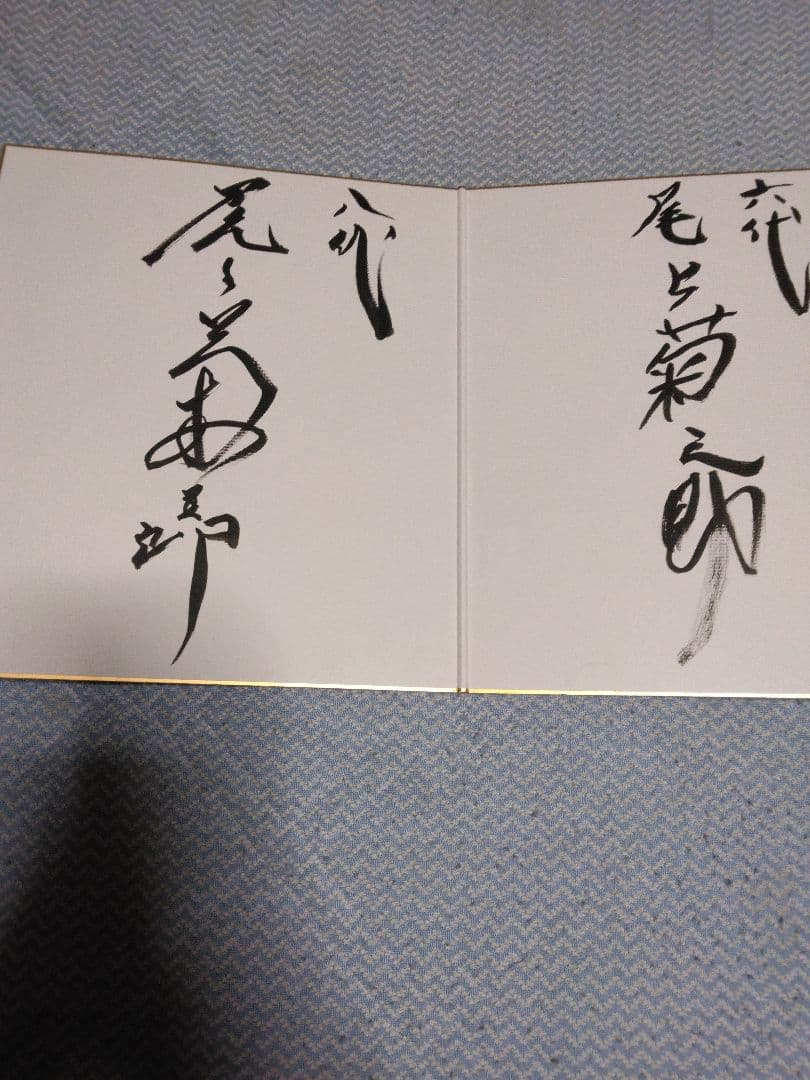 六代
尾上菊之助
八代
尾上菊五郎